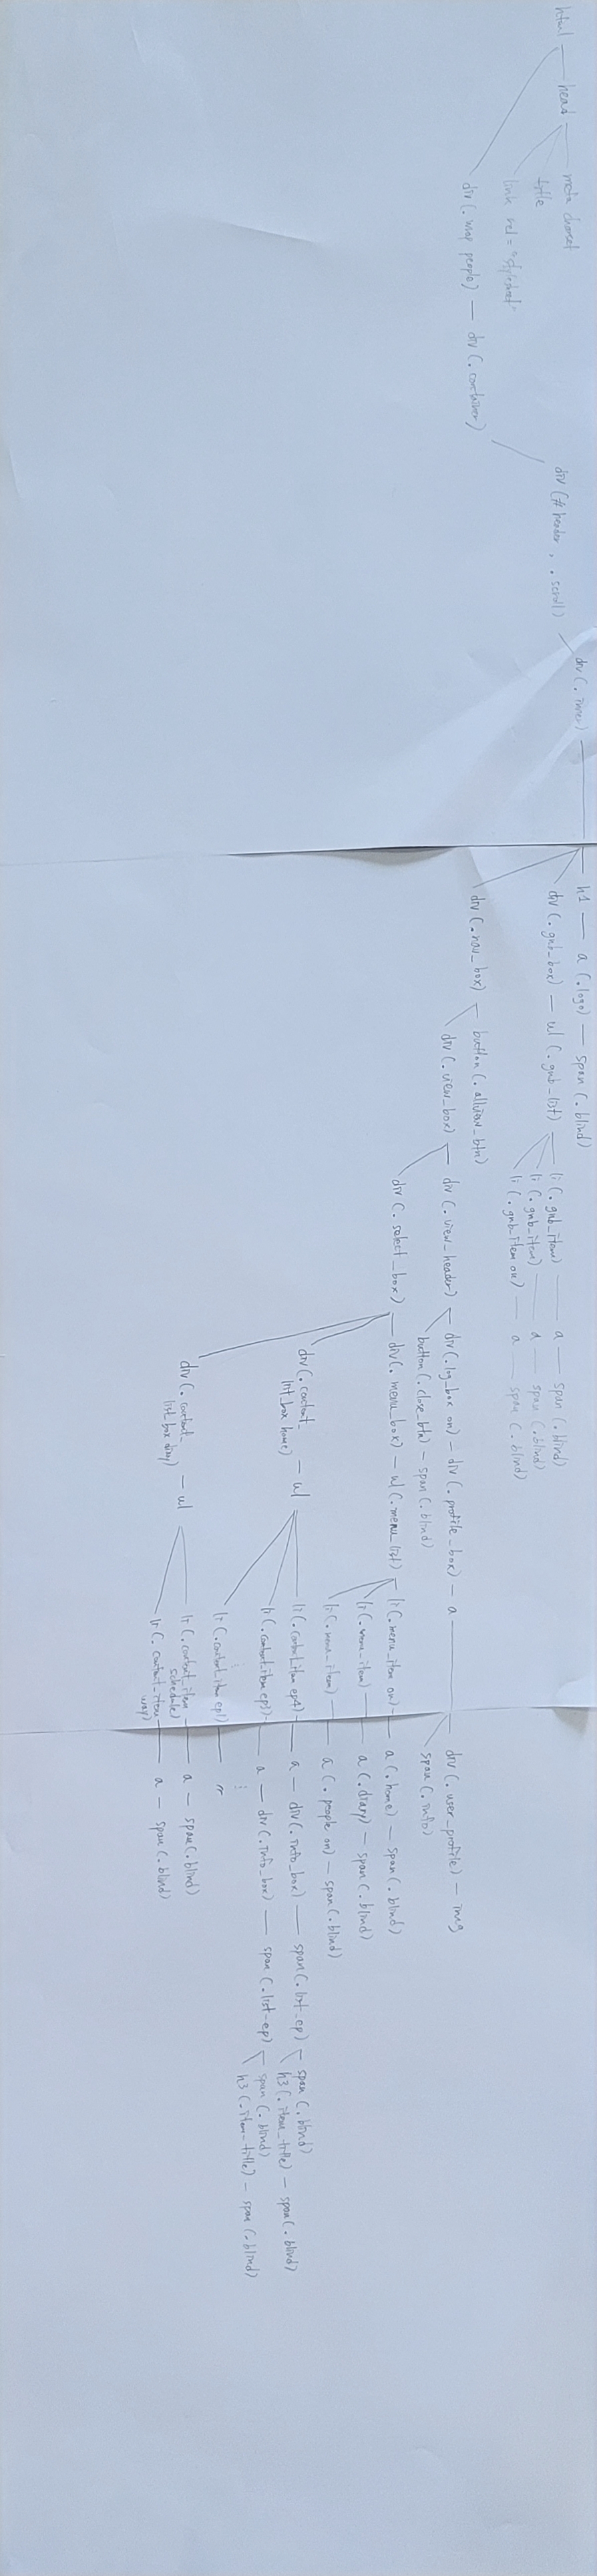 html — head — meta charset
title
link rel = "stylesheet"
div (. wrap people) — div (. container)
div (# header, . scroll)
div (. inner)
h1 — a (. logo) — span (. blind)
div (. gnb_box) — ul (. gnb_list) — li (. gnb_item) — a — span (. blind)
li (. gnb_item) — a — span (. blind)
li (. gnb_item on) — a — span (. blind)
div (. nav_box) — button (. allview_btn)
div (. view_box) — div (. view_header) — div (. log_box on) — div (. profile_box) — a — div (. user_profile) — img
span (. info)
button (. close_btn) — span (. blind)
div (. select_box) — div (. menu_box) — ul (. menu_list) — li (. menu_item on) — a (. home) — span (. blind)
li (. menu_item) — a (. diary) — span (. blind)
li (. menu_item) — a (. people on) — span (. blind)
div (. content_
list_box home) — ul — li (. content_item ep4) — a — div (. info_box) — span (. list_ep) — span (. blind)
h3 (. item_title) — span (. blind)
li (. content_item ep3) — a — div (. info_box) — span (. list-ep) — span (. blind)
h3 (. item-title) — span (. blind)
li (. content_item ep1) — 〃
div (. content_
list_box diary) — ul — li (. content_item
schedule) — a — span (. blind)
li (. content_item
way) — a — span (. blind)